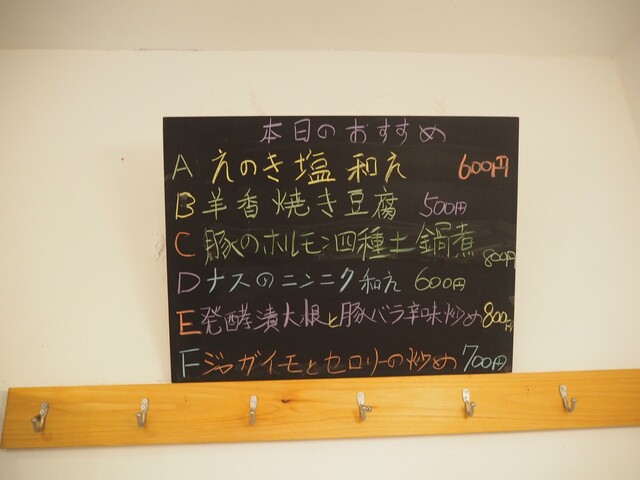 本日のおすすめ
A えのき塩和え 600円
B 羊香焼き豆腐 500円
C 豚のホルモン四種土鍋煮 800円
D ナスのニンニク和え 600円
E 発酵漬大根と豚バラ辛味炒め 800円
F ジャガイモとセロリーの炒め 700円